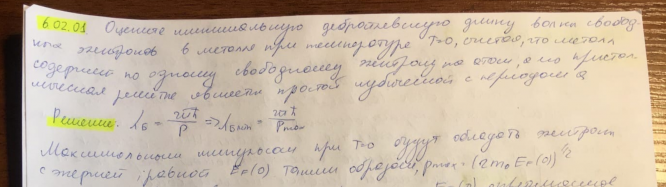 6.02.01 Оцените минимальную дебройлевскую длину волны свобод-
ных электронов в металле при температуре T=0, считая, что металл
содержит по одному свободному электрону на атом, а его кристал-
лическая решетка является простой кубической с периодом a
Решение. λ_Б = 2πħ/P => λ_Бmin = 2πħ/P_max
Максимальным импульсом при T=0 будут обладать электроны
с энергией, равной E_F(0) таким образом, p_max = (2m_0E_F(0))^1/2